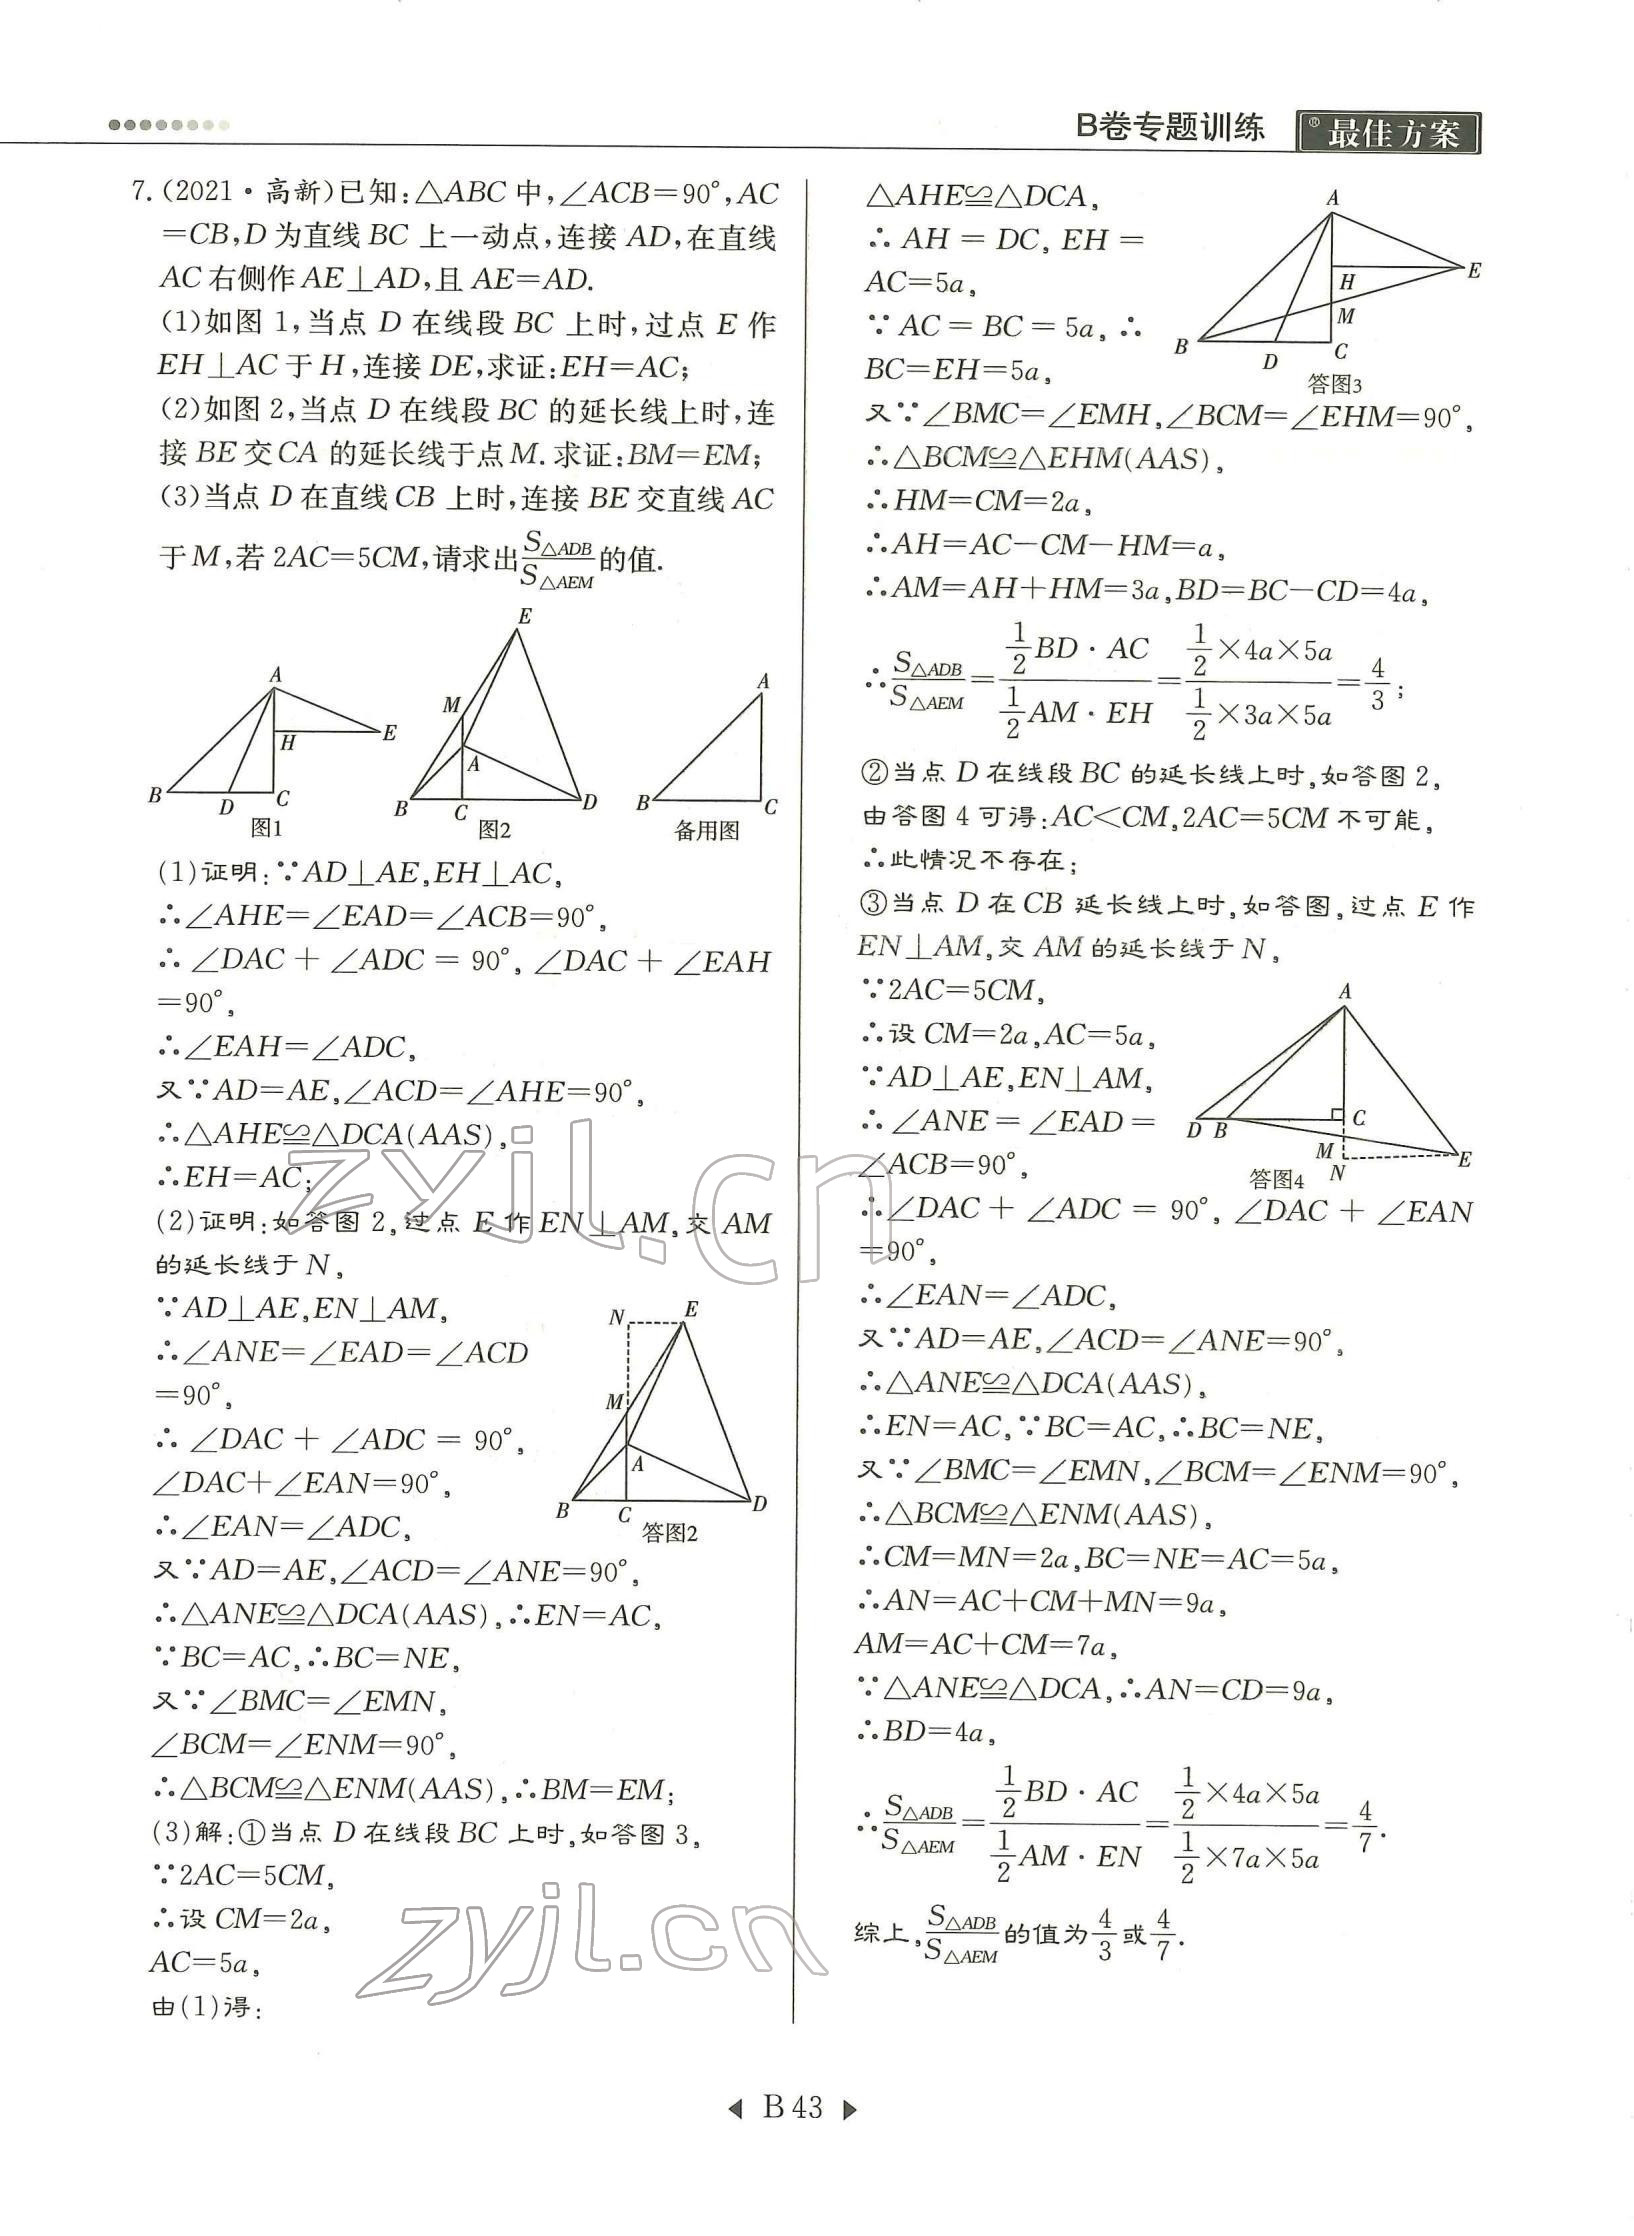 B卷专题训练 ®最佳方案
7.(2021·高新)已知:△ABC中,∠ACB=90°,AC
=CB,D为直线BC上一动点,连接AD,在直线
AC右侧作AE⊥AD,且AE=AD.
(1)如图1,当点D在线段BC上时,过点E作
EH⊥AC于H,连接DE,求证:EH=AC;
(2)如图2,当点D在线段BC的延长线上时,连
接BE交CA的延长线于点M.求证:BM=EM;
(3)当点D在直线CB上时,连接BE交直线AC
于M,若2AC=5CM,请求出S△ADB/S△AEM的值.
A E H B D C 图1
E M A B C D 图2
A B C 备用图
(1)证明:∵AD⊥AE,EH⊥AC,
∴∠AHE=∠EAD=∠ACB=90°,
∴∠DAC+∠ADC=90°,∠DAC+∠EAH
=90°,
∴∠EAH=∠ADC,
又∵AD=AE,∠ACD=∠AHE=90°,
∴△AHE≌△DCA(AAS),
∴EH=AC;
(2)证明:如答图2,过点E作EN⊥AM,交AM
的延长线于N,
∵AD⊥AE,EN⊥AM,
∴∠ANE=∠EAD=∠ACD
=90°,
∴∠DAC+∠ADC=90°,
∠DAC+∠EAN=90°,
∴∠EAN=∠ADC,
N E M A B C D 答图2
又∵AD=AE,∠ACD=∠ANE=90°,
∴△ANE≌△DCA(AAS),∴EN=AC,
∵BC=AC,∴BC=NE,
又∵∠BMC=∠EMN,
∠BCM=∠ENM=90°,
∴△BCM≌△ENM(AAS),∴BM=EM;
(3)解:①当点D在线段BC上时,如答图3,
∵2AC=5CM,
∴设CM=2a,
AC=5a,
由(1)得:
△AHE≌△DCA,
∴AH=DC,EH=
AC=5a,
∵AC=BC=5a,∴
BC=EH=5a,
A E H M B D C 答图3
又∵∠BMC=∠EMH,∠BCM=∠EHM=90°,
∴△BCM≌△EHM(AAS),
∴HM=CM=2a,
∴AH=AC-CM-HM=a,
∴AM=AH+HM=3a,BD=BC-CD=4a,
∴S△ADB/S△AEM=(1/2 BD·AC)/(1/2 AM·EH)=(1/2×4a×5a)/(1/2×3a×5a)=4/3;
②当点D在线段BC的延长线上时,如答图2,
由答图4可得:AC<CM,2AC=5CM不可能,
∴此情况不存在;
③当点D在CB延长线上时,如答图,过点E作
EN⊥AM,交AM的延长线于N,
∵2AC=5CM,
∴设CM=2a,AC=5a,
∵AD⊥AE,EN⊥AM,
∴∠ANE=∠EAD=
∠ACB=90°,
A D B C M N E 答图4
∴∠DAC+∠ADC=90°,∠DAC+∠EAN
=90°,
∴∠EAN=∠ADC,
又∵AD=AE,∠ACD=∠ANE=90°,
∴△ANE≌△DCA(AAS),
∴EN=AC,∵BC=AC,∴BC=NE,
又∵∠BMC=∠EMN,∠BCM=∠ENM=90°,
∴△BCM≌△ENM(AAS),
∴CM=MN=2a,BC=NE=AC=5a,
∴AN=AC+CM+MN=9a,
AM=AC+CM=7a,
∵△ANE≌△DCA,∴AN=CD=9a,
∴BD=4a,
∴S△ADB/S△AEM=(1/2 BD·AC)/(1/2 AM·EN)=(1/2×4a×5a)/(1/2×7a×5a)=4/7.
综上,S△ADB/S△AEM的值为4/3或4/7.
zyjl.cn
zyjl.cn
B43